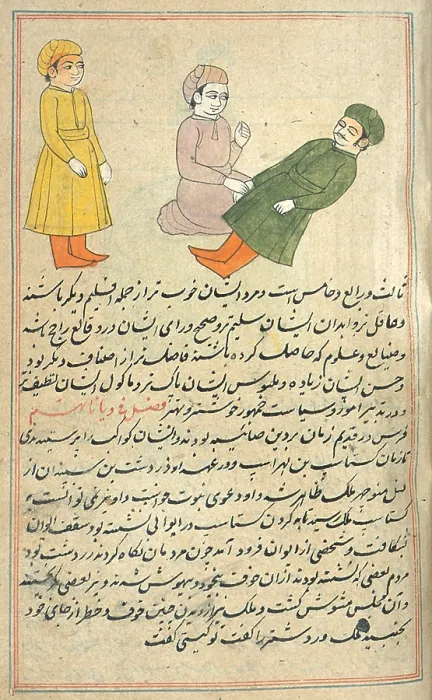 ثالث و رابع و خامس است و مرد ایشان خوب تر از جمله اقلیم دیگر باشند
و عاقل تر و ابدان ایشان سلیم تر و صحیح و رای ایشان در وقایع راجح باشد
و صنایع و علوم که حاصل کرده باشند فاضل تر از اصناف دیگر بود
و حسن ایشان زیاده و ملبوس ایشان پاک تر و ماکول ایشان لطیف تر
و در تدبیر امور و سیاست جمهور خوشتر و بهتر فصل فی دیاناتهم
فرس در قدیم زمان بر دین صائبه بودند و ایشان کواکب را پرستیدندی
تا زمان کشتاسب بن لهراسب و در عهد او زردشت بن
منوچهر ملک ظاهر شد و او دعوی نبوت
کشتاسب ملک کشتاسب در ایوانی نشسته بود سقف ایوان
بشکافت و شخصی از ایوان فرود آمد چون مردمان نگاه کردند زردشت بود
مردم بعضی که نشسته بودند از آن خوف بیخود و بیهوش شدند و بعضی
و آن مجلس مشوش گشت و ملک نیز خوف و خطر از جای خود
بجنبید ملک زردشت را گفت تو کیستی گفت